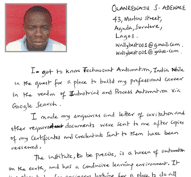 OLANREWAJU S. ADEWALE
43, Market Street,
Lagos.
I got to know Technocrat Automation, India while
in the quest for a place to build my professional career
in the realm of Industrial and Process Automation via
Google Search.
I made my enquiries and letter of invitation and
other documents were sent to me after copies
of my Certificates and Credentials sent to them have been
reviewed.
The institute, to be precise, is a haven of automation
on the earth, and has a conducive learning environment. It
looking for a place to do all